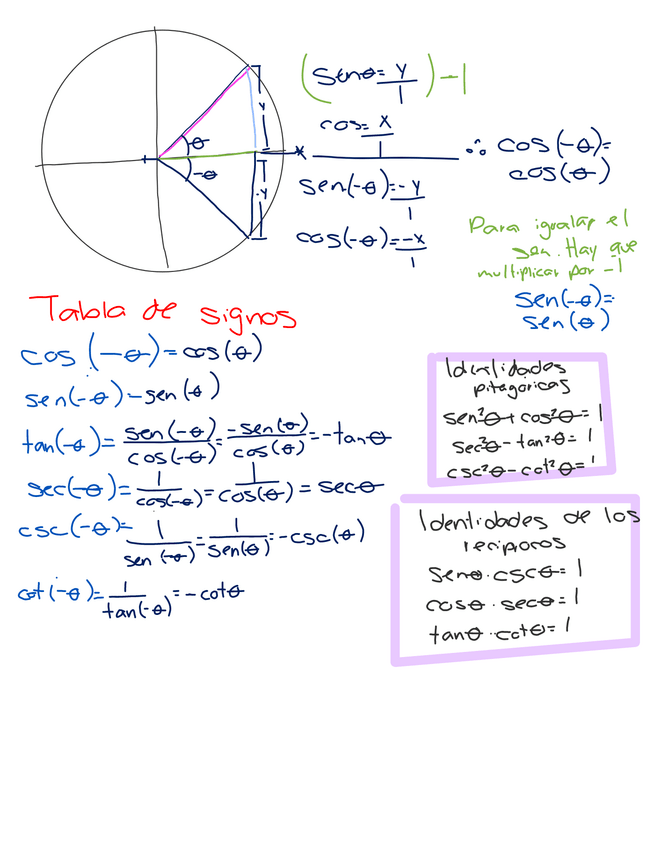 (senθ = y/1) -1
cos = x/1
sen(-θ) = -y/1
cos(-θ) = -x/1
∴ cos(-θ) =
cos(θ)
Para igualar el
sen. Hay que
multiplicar por -1
sen(-θ) =
sen(θ)
θ
-θ
y
-y
x
Tabla de signos
cos (-θ) = cos(θ)
sen(-θ) - sen(θ)
tan(-θ) = sen(-θ)/cos(-θ) = -sen(θ)/cos(θ) = -tanθ
sec(-θ) = 1/cos(-θ) = 1/cos(θ) = secθ
csc(-θ) = 1/sen(-θ) = 1/sen(θ) = -csc(θ)
cot(-θ) = 1/tan(-θ) = -cotθ
Identidades
pitagóricas
sen²θ + cos²θ = 1
sec²θ - tan²θ = 1
csc²θ - cot²θ = 1
Identidades de los
recíprocos
senθ · cscθ = 1
cosθ · secθ = 1
tanθ · cotθ = 1